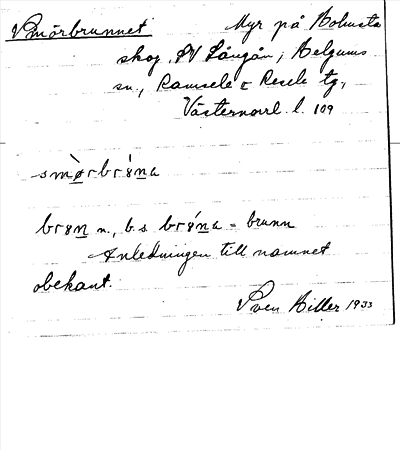 Smörbrunnet Myr på Bohusta
skog, SV Långån, Helgums
sn., Ramsele o Resele tg,
Västernorrl. l. 109
smø̀rbrón̲a
bron̲ n., b.s. brón̲a = brunn
Anledningen till namnet
obekant.
Sven Hiller 1933